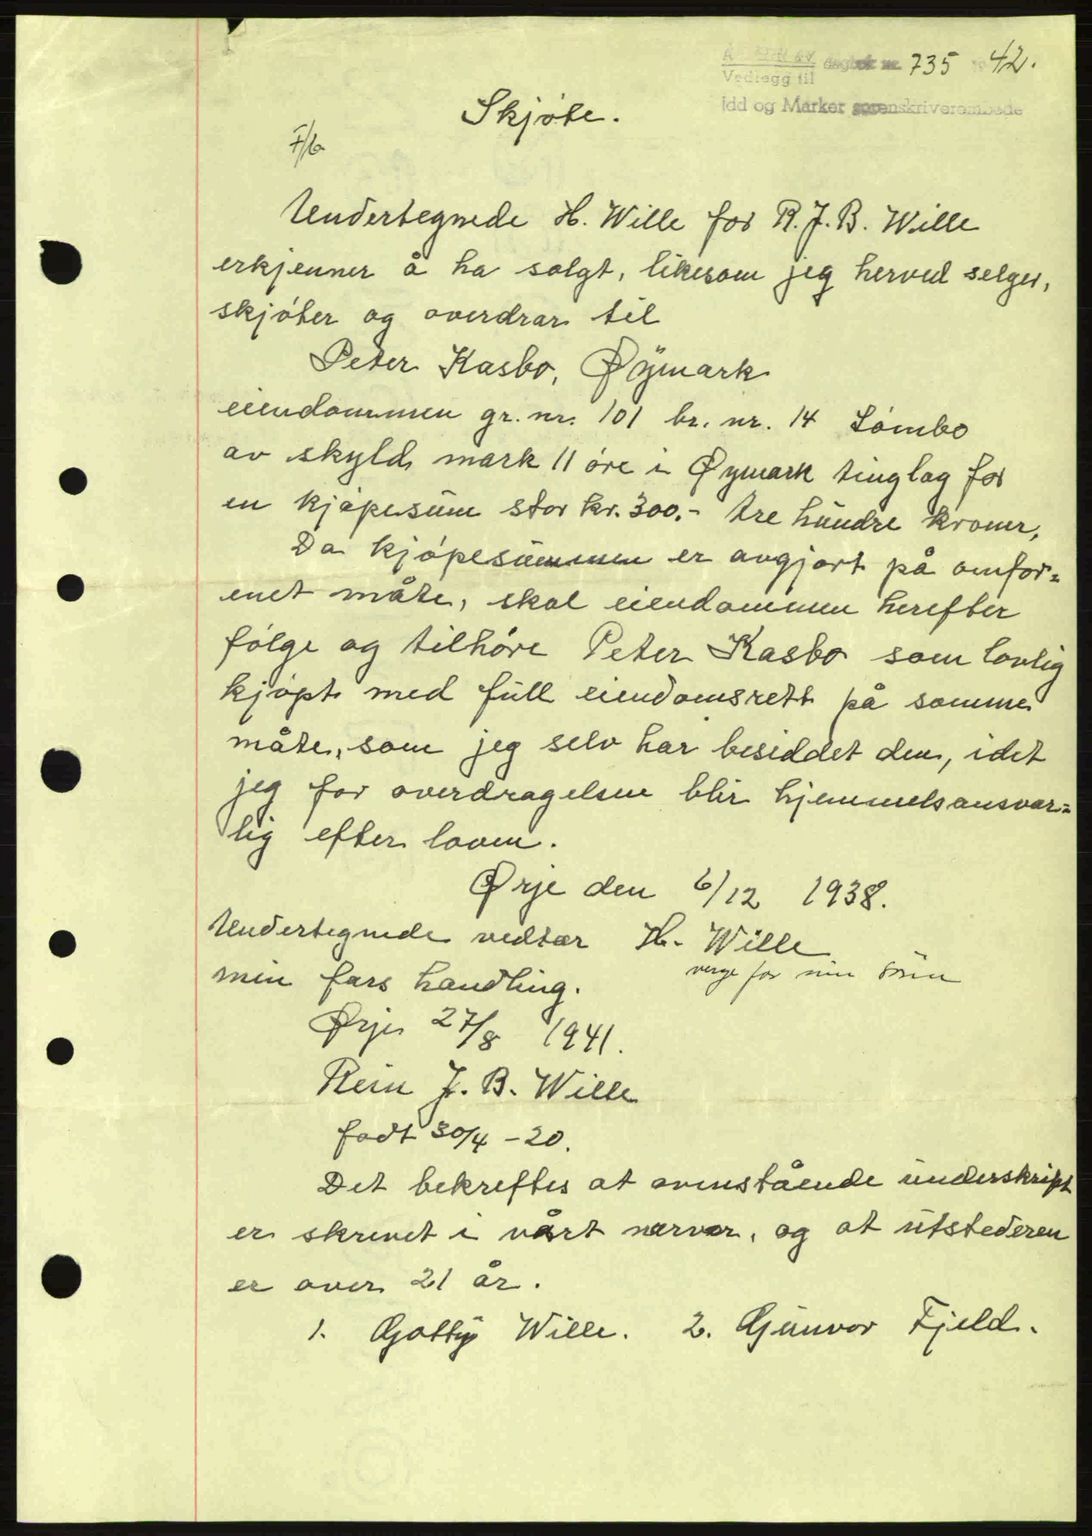 dagbok nr. 735 1942.
Vedlegg til
Idd og Marker sorenskriverembede
Skjøte.
F/b
Undertegnede H. Wille for R. J. B. Wille
erkjenner å ha solgt, likesom jeg herved selger,
skjøter og overdrar til
Peter Kasbo, Øymark
eiendommen gr. nr. 101 br. nr. 14 Lømbo
av skyld mark 11 øre i Øymark tinglag for
en kjøpesum stor kr. 300.- tre hundre kroner.
Da kjøpesummen er avgjort på omfor=
enet måte, skal eiendommen herefter
følge og tilhøre Peter Kasbo som lovlig
kjøpt med full eiendomsrett på samme
måte, som jeg selv har besiddet den, idet
jeg for overdragelsen blir hjemmelsansvar=
lig efter loven.
Ørje den 6/12 1938.
Undertegnede vedtar H. Wille
min fars handling. verge for min sønn
Ørje 27/8 1941.
Rein J. B. Wille
født 30/4 -20.
Det bekreftes at ovenstående underskript
er skrevet i vårt nærvær, og at utstederen
er over 21 år.
1. Wille. 2. Gunvor Fjeld.